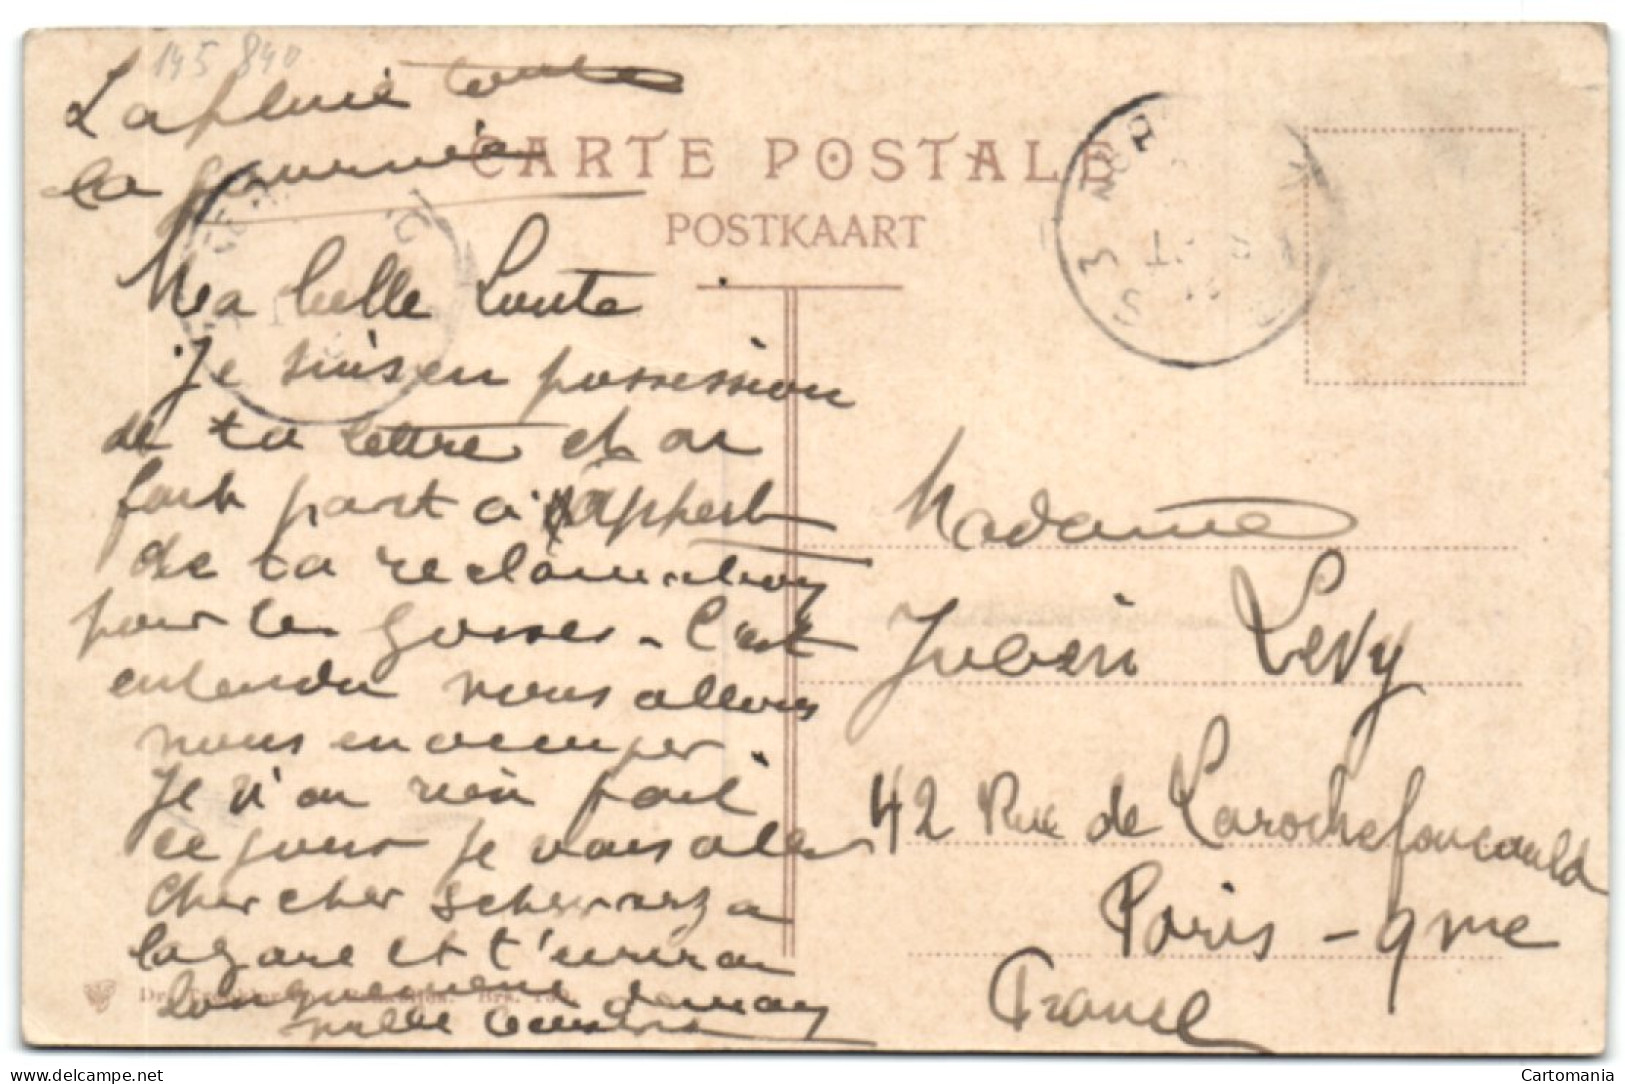 145 840
La pluie toute
la journée
CARTE POSTALE
POSTKAART
Ma belle Loute
Je suis en possession
de ta lettre et on
fait part à
de ta reclamation
pour les gosses - C'est
entendu nous allons
nous en occuper.
Je n'ai rien fait
ce jour je vais aller
chercher Schwarz a
la gare et t'ecrirai
longuement demain
mille tendresses
Madame
Julien Levy
42 Rue de Larochefoucauld
Paris - 9me
France
www.delcampe.net
Cartomania